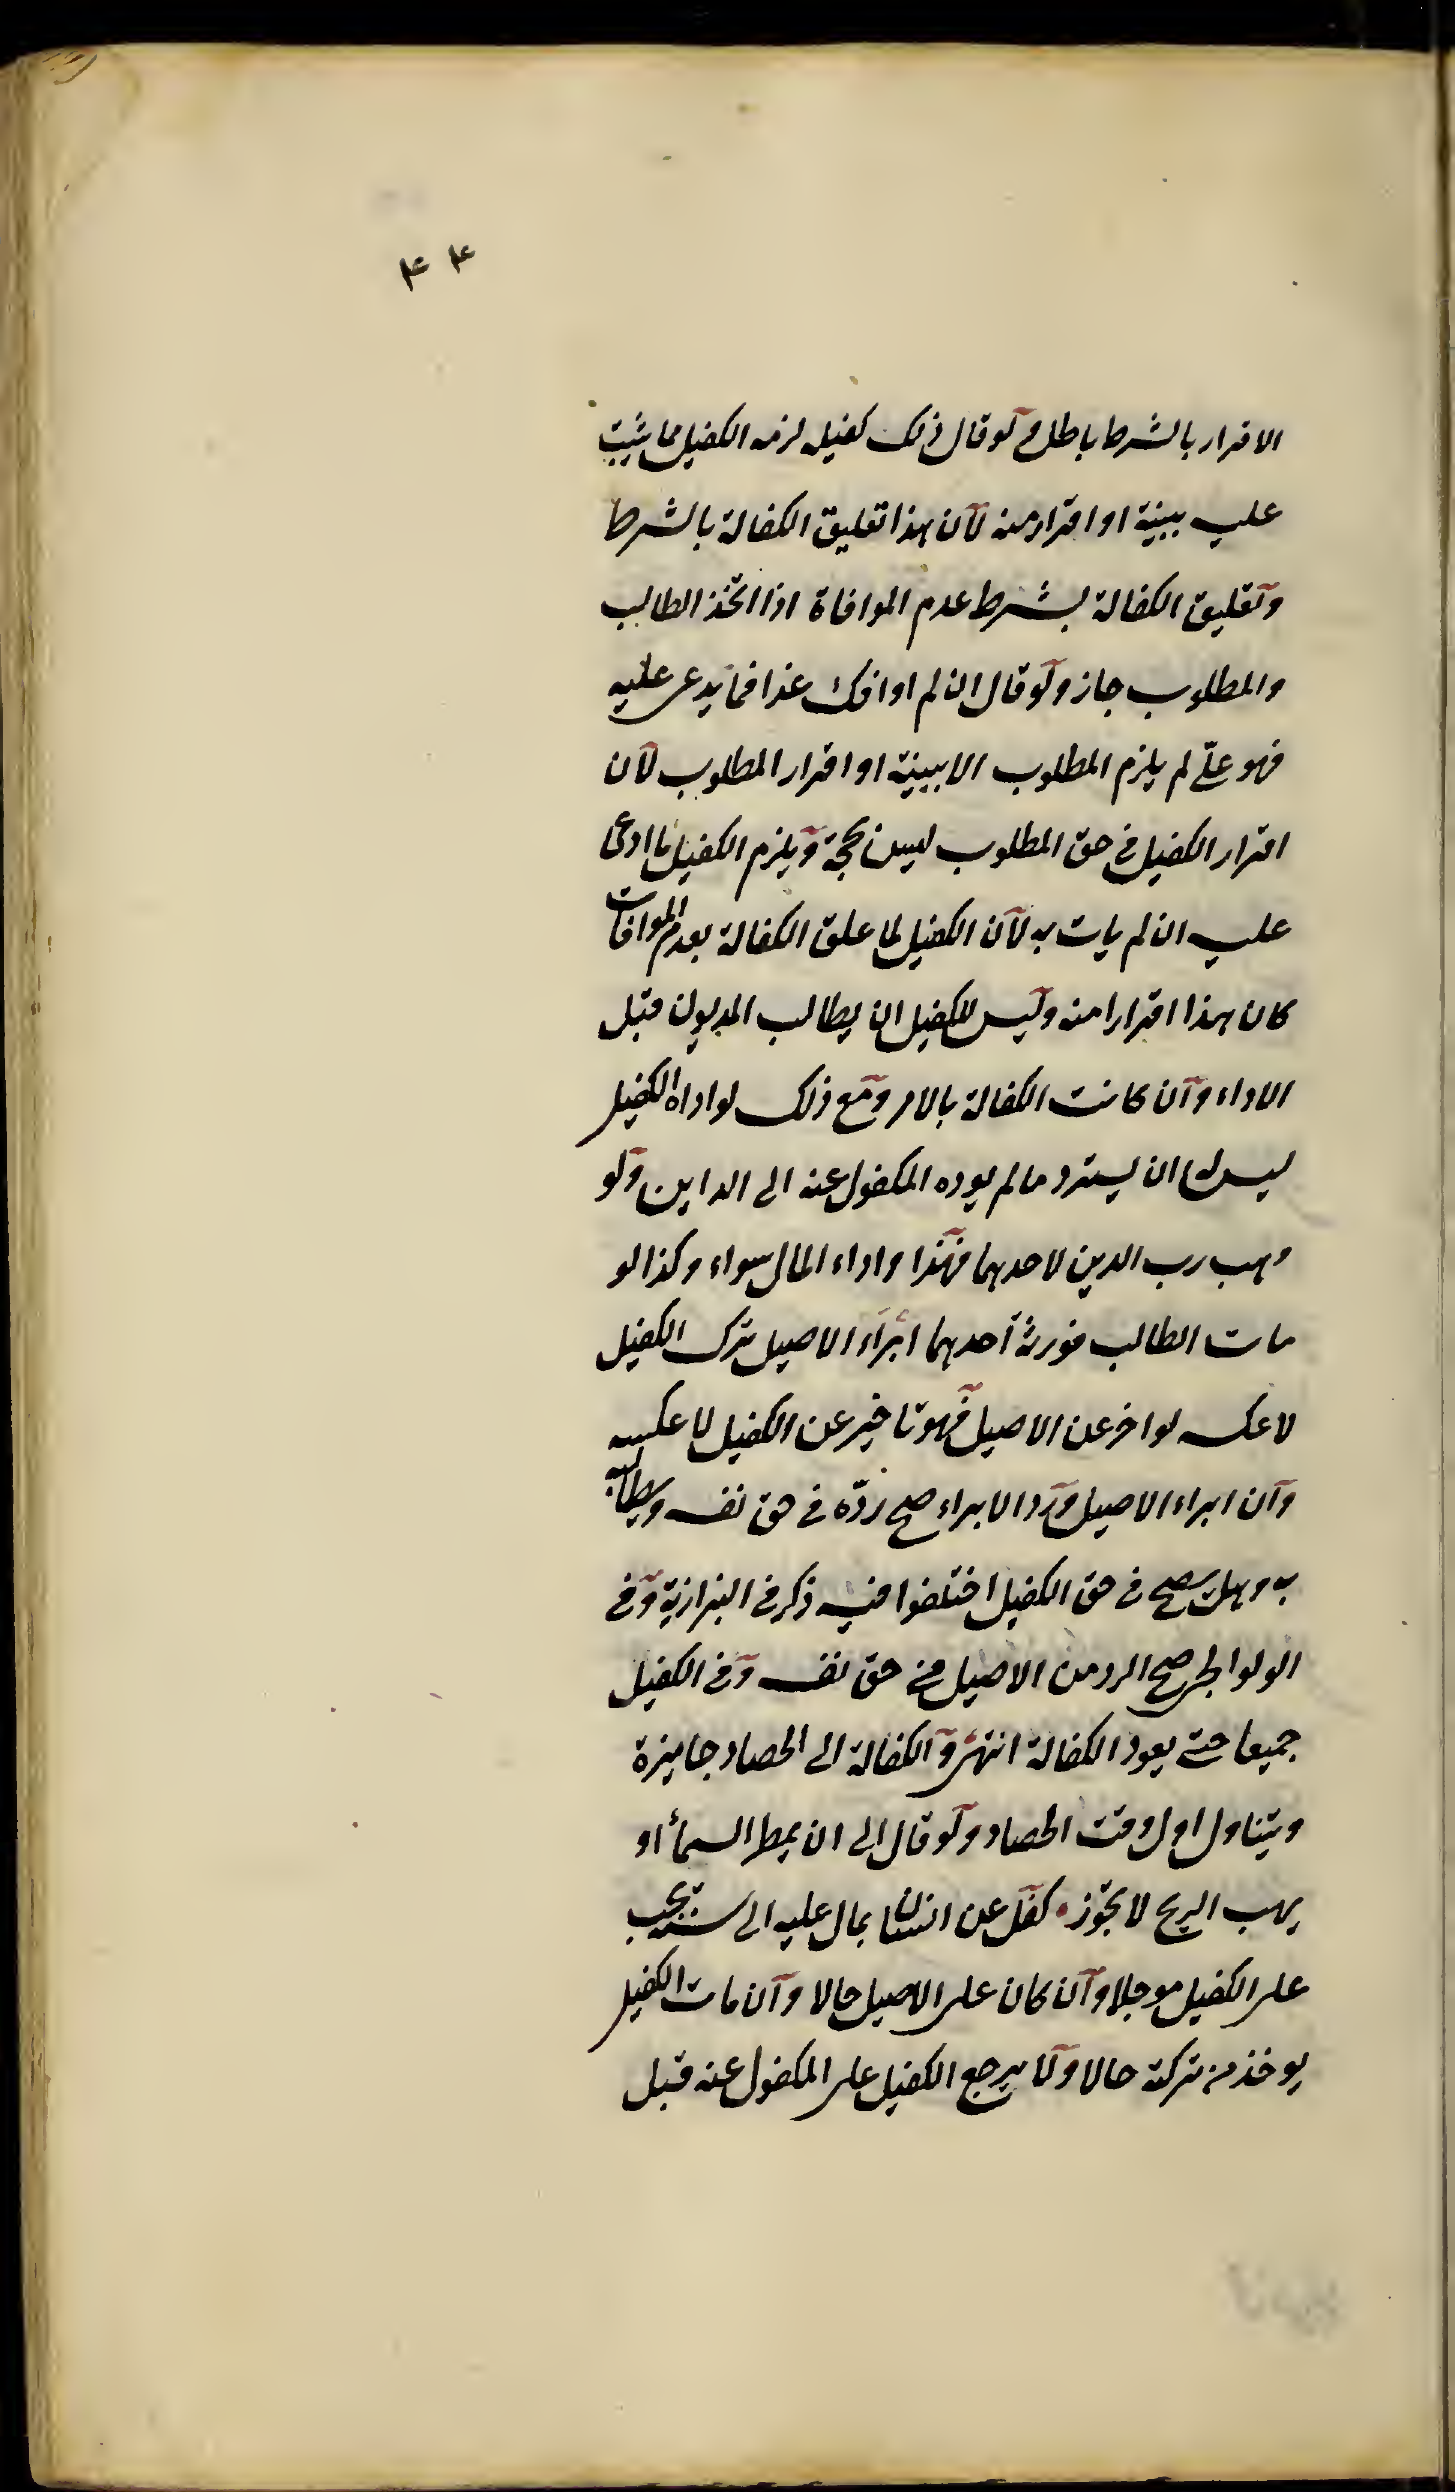 ۴۴
الاقرار بالشرط باطل ولو قال ذلك كفيله لزمه الكفيل مما يثبت
عليه ببينة او اقرار منه لان هذا تعليق الكفالة بالشرط
وتعليق الكفالة بشرط عدم الموافاة اذا اتخذ الطالب
والمطلوب جاز ولو قال ان لم اوافك غدا فما يدعى عليه
فهو علىّ لم يلزم المطلوب الا ببينة او اقرار المطلوب لان
اقرار الكفيل فى حق المطلوب ليس بحجة ويلزم الكفيل ما ادعى
عليه ان لم يات به لان الكفيل لما علق الكفالة بعدم الموافات
كان هذا اقرارا منه وليس للكفيل ان يطالب المديون قبل
الاداء وان كانت الكفالة بالامر ومع ذلك لو اداه الكفيل
ليس له ان يسترد ما لم يوده المكفول عنه الى الداين ولو
وهب رب الدين لاحدهما فهذا واداء المال سواء وكذا لو
مات الطالب فورثه احدهما ابراء الاصيل يترك الكفيل
لا عكسه لو اخر عن الاصيل فهو تاخير عن الكفيل لا عكسه
وان ابراء الاصيل ورد الابراء صح ردّه فى حق نفسه ويطالب
به وهل يصح فى حق الكفيل اختلفوا فيه ذكر فى البزازية وفى
الولوالجى صح الرد من الاصيل فى حق نفسه وفى الكفيل
جميعا حتى يعود الكفالة انتهى والكفالة الى الحصاد جايزة
ويتناول اول وقت الحصاد ولو قال الى ان يمطر السمأ او
يهب الريح لا يجوز كفل عن انسان بمال عليه الى سنة يجب
على الكفيل موجلا وان كان على الاصيل حالا وان مات الكفيل
يوخذ من تركته حالا ولا يرجع الكفيل على المكفول عنه قبل